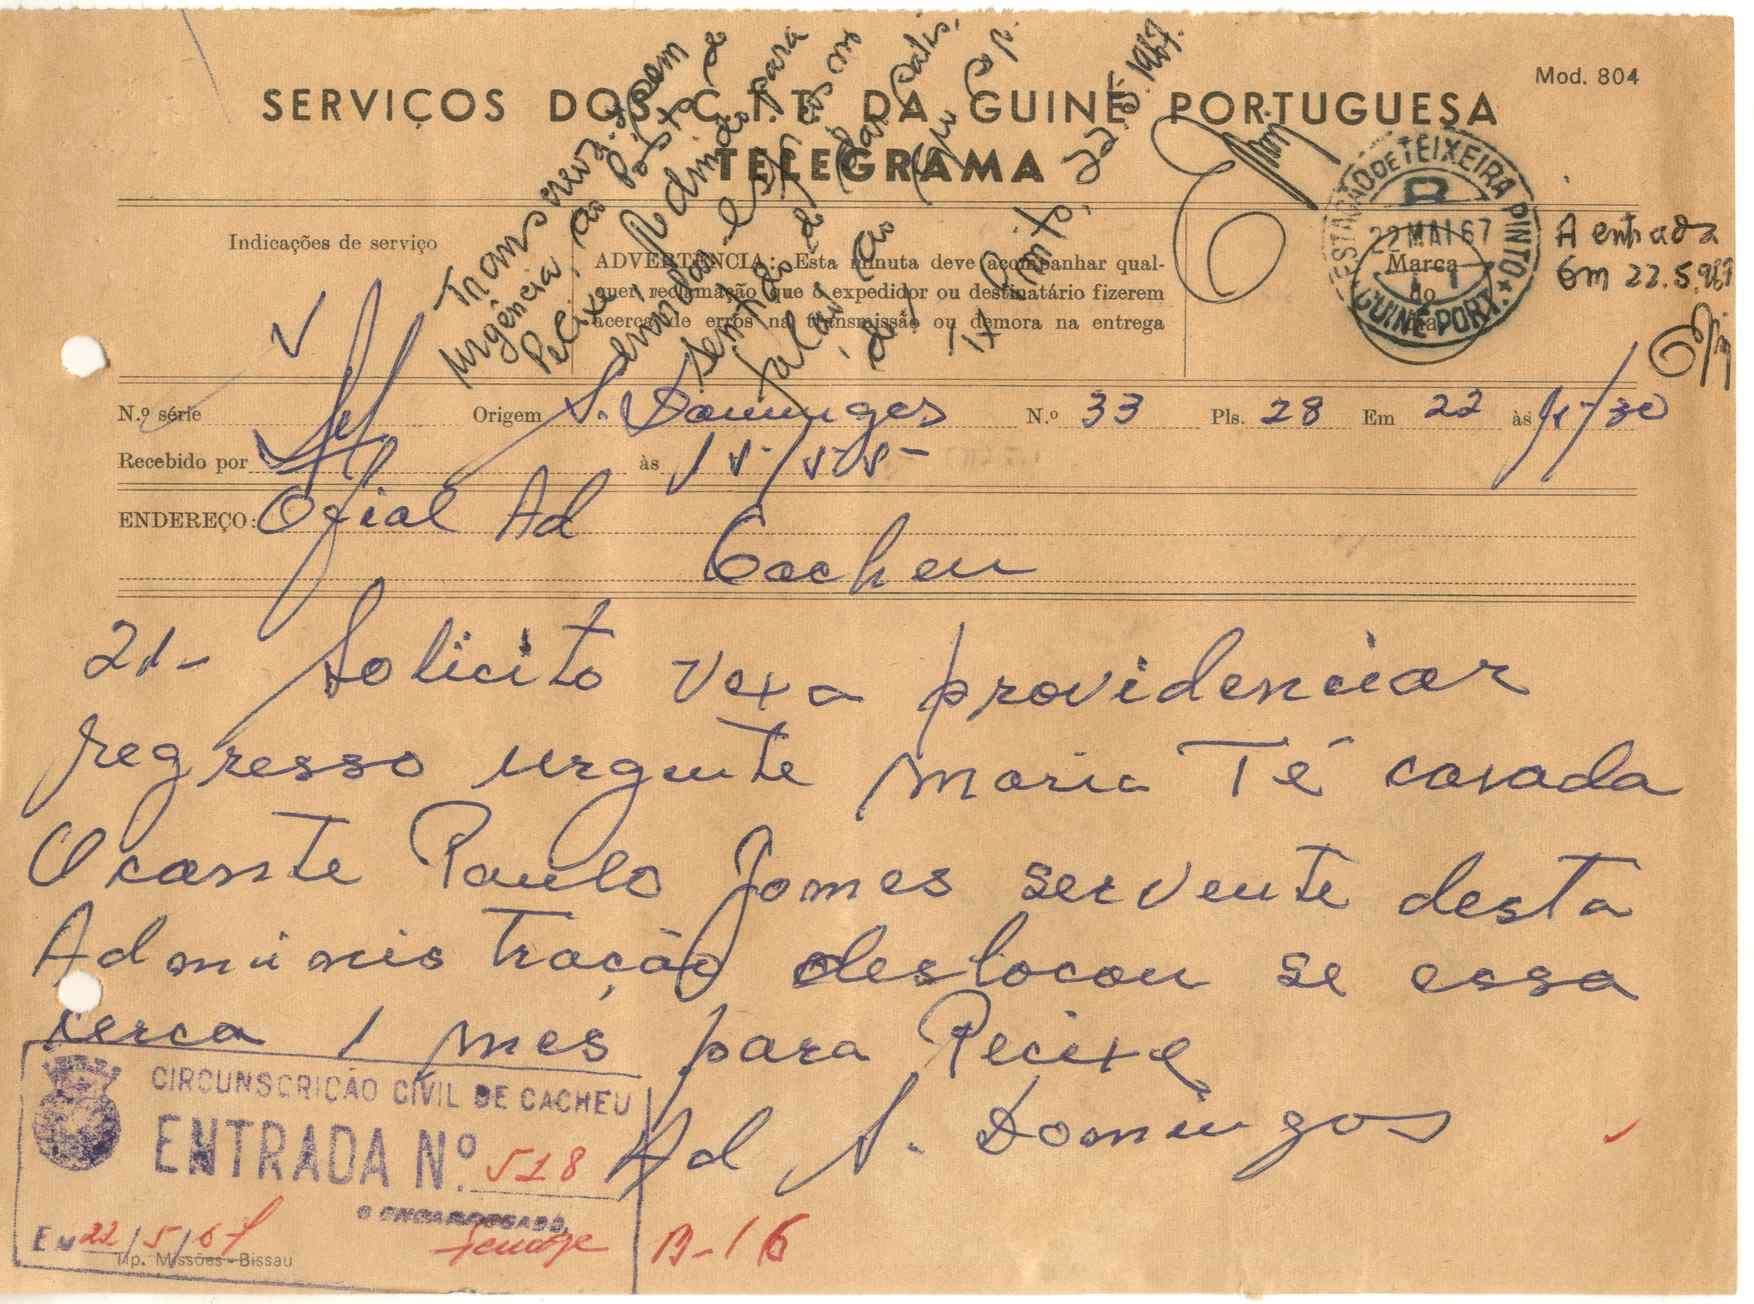 Mod. 804
SERVIÇOS DOS C.T.T. DA GUINÉ PORTUGUESA
TELEGRAMA
Indicações de serviço
ADVERTÊNCIA: Esta minuta deve acompanhar qual-
quer reclamação que o expedidor ou destinatário fizerem
acerca de erros na transmissão ou demora na entrega
Transcreva-se, com
urgência, ao Posto de
Pecixe,
para
sentido de
falar ao
22.5.1967.
ESTAÇÃO DE TEIXEIRA PINTO
22 MAI 67
GUINÉ PORT.
Marca
do
dia
A entrada
Em 22.5.967
N.º série Origem S. Domingos N.º 33 Pls. 28 Em 22 às 15/30
Recebido por às 15/55-
ENDEREÇO: Ofial Ad
Cacheu
21- Solicito Vexa providenciar
regresso urgente Maria Té casada
Ocante Paulo Gomes servente desta
Administração deslocou se essa
cerca 1 mês para Pecixe
Ad S. Domingos
CIRCUNSCRIÇÃO CIVIL DE CACHEU
ENTRADA N.º 518
O ENCARREGADO,
EM 22/5/67
B-16
Tip. Missões-Bissau